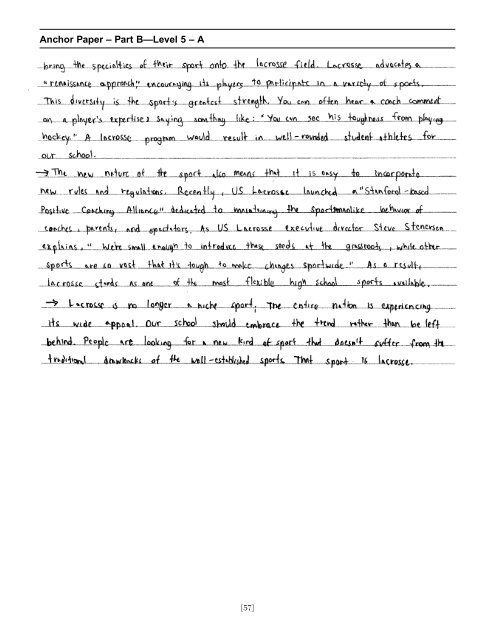 Anchor Paper – Part B—Level 5 – A
bring the specialties of their sport onto the lacrosse field. Lacrosse advocates a
"renaissance approach," encouraging its players to participate in a variety of sports.
This diversity is the sport's greatest strength. You can often hear a coach comment
on a player's expertise, saying something like: "You can see his toughness from playing
hockey." A lacrosse program would result in well-rounded student athletes for
our school.
→ The new nature of the sport also means that it is easy to incorporate
new rules and regulations. Recently, US Lacrosse launched a "Stanford-based
Positive Coaching Alliance" dedicated to maintaining the sportsmanlike behavior of
coaches, parents, and spectators. As US Lacrosse executive director Steve Stenersen
explains, "We're small enough to introduce these seeds at the grassroots, while other
sports are so vast that it's tough to make changes sportwide." As a result,
lacrosse stands as one of the most flexible high school sports available.
→ Lacrosse is no longer a niche sport; The entire nation is experiencing
its wide appeal. Our school should embrace the trend rather than be left
behind. People are looking for a new kind of sport that doesn't suffer from the
traditional drawbacks of the well-established sports. That sport is lacrosse.
[57]